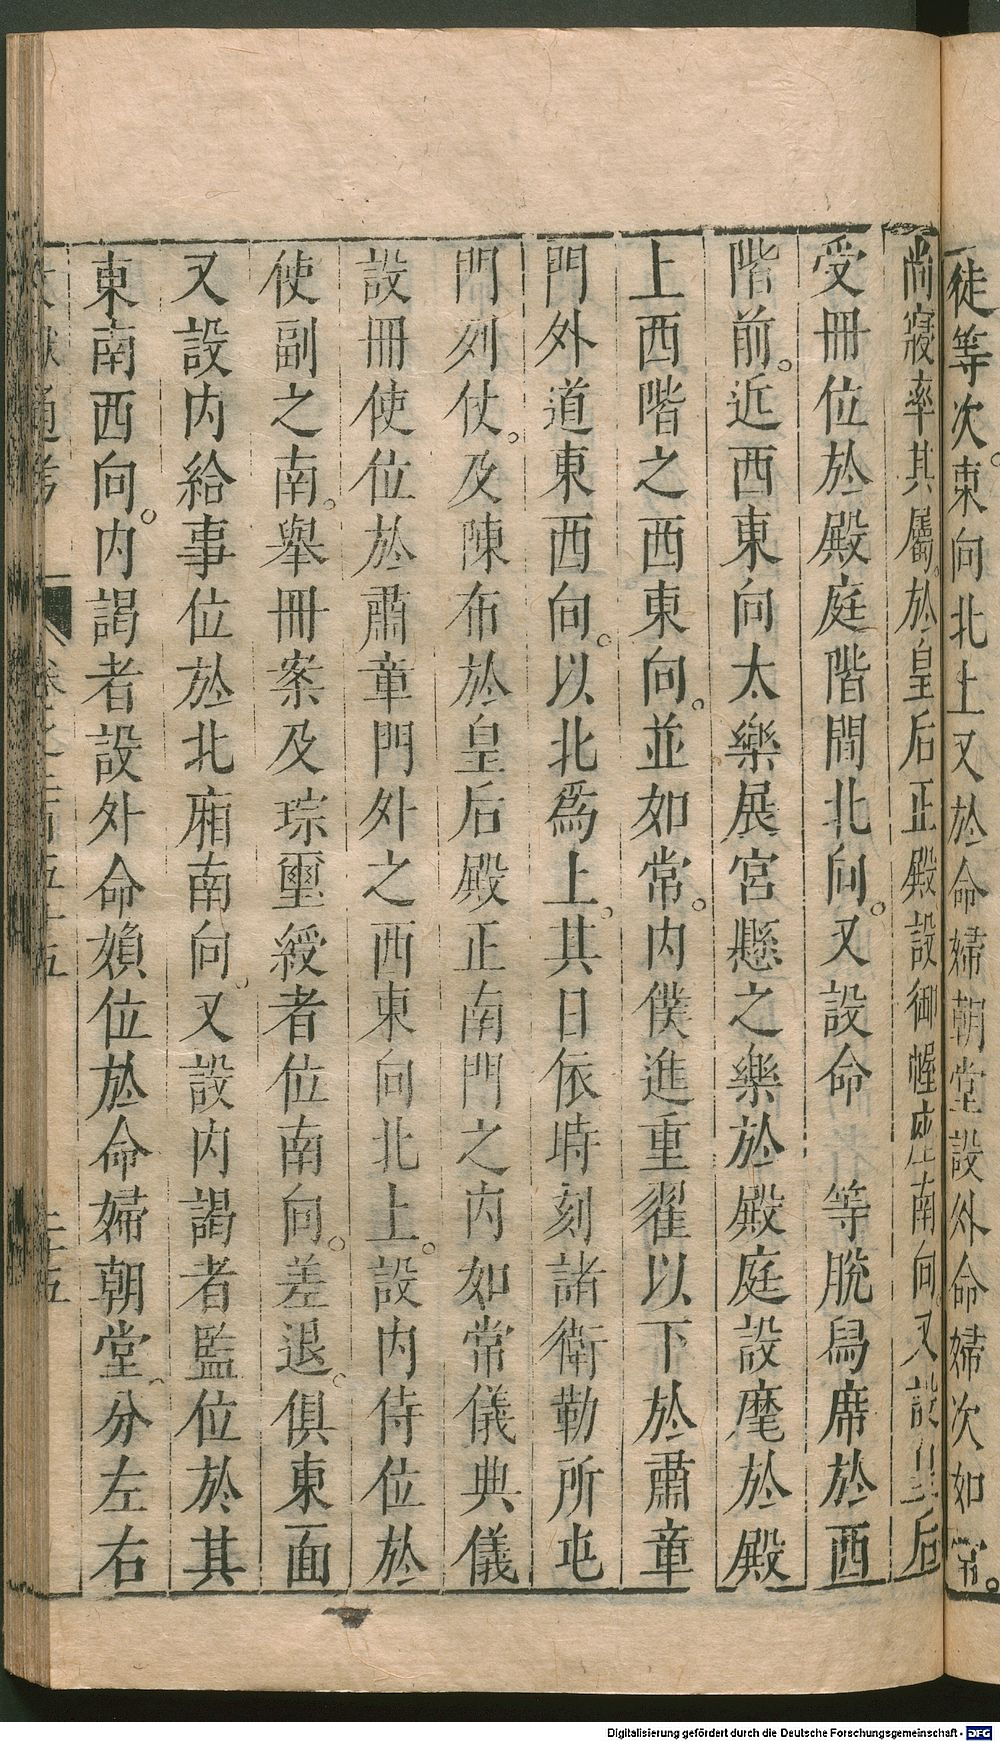 徒等次。東向北上又於命婦朝堂設外命婦次如常。
尚寢率其屬。於皇后正殿設御幄座南向。又設皇后
受冊位於殿庭階間北向。又設命 等脫舄席於西
階前。近西東向太樂展宮懸之樂於殿庭設麾於殿
上西階之西東向。並如常。内僕進重翟以下於肅章
門外道東西向。以北爲上。其日依時刻諸衛勒所屯
門列仗。及陳布於皇后殿正南門之内如常儀典儀
設冊使位於肅章門外之西東向北上。設内侍位於
使副之南。舉冊案及琮璽綬者位南向。差退。俱東面
又設内給事位於北廂南向。又設内謁者監位於其
東南西向。内謁者設外命婦位於命婦朝堂分左右
通考 卷之二百五十五 二十五
Digitalisierung gefördert durch die Deutsche Forschungsgemeinschaft - DFG